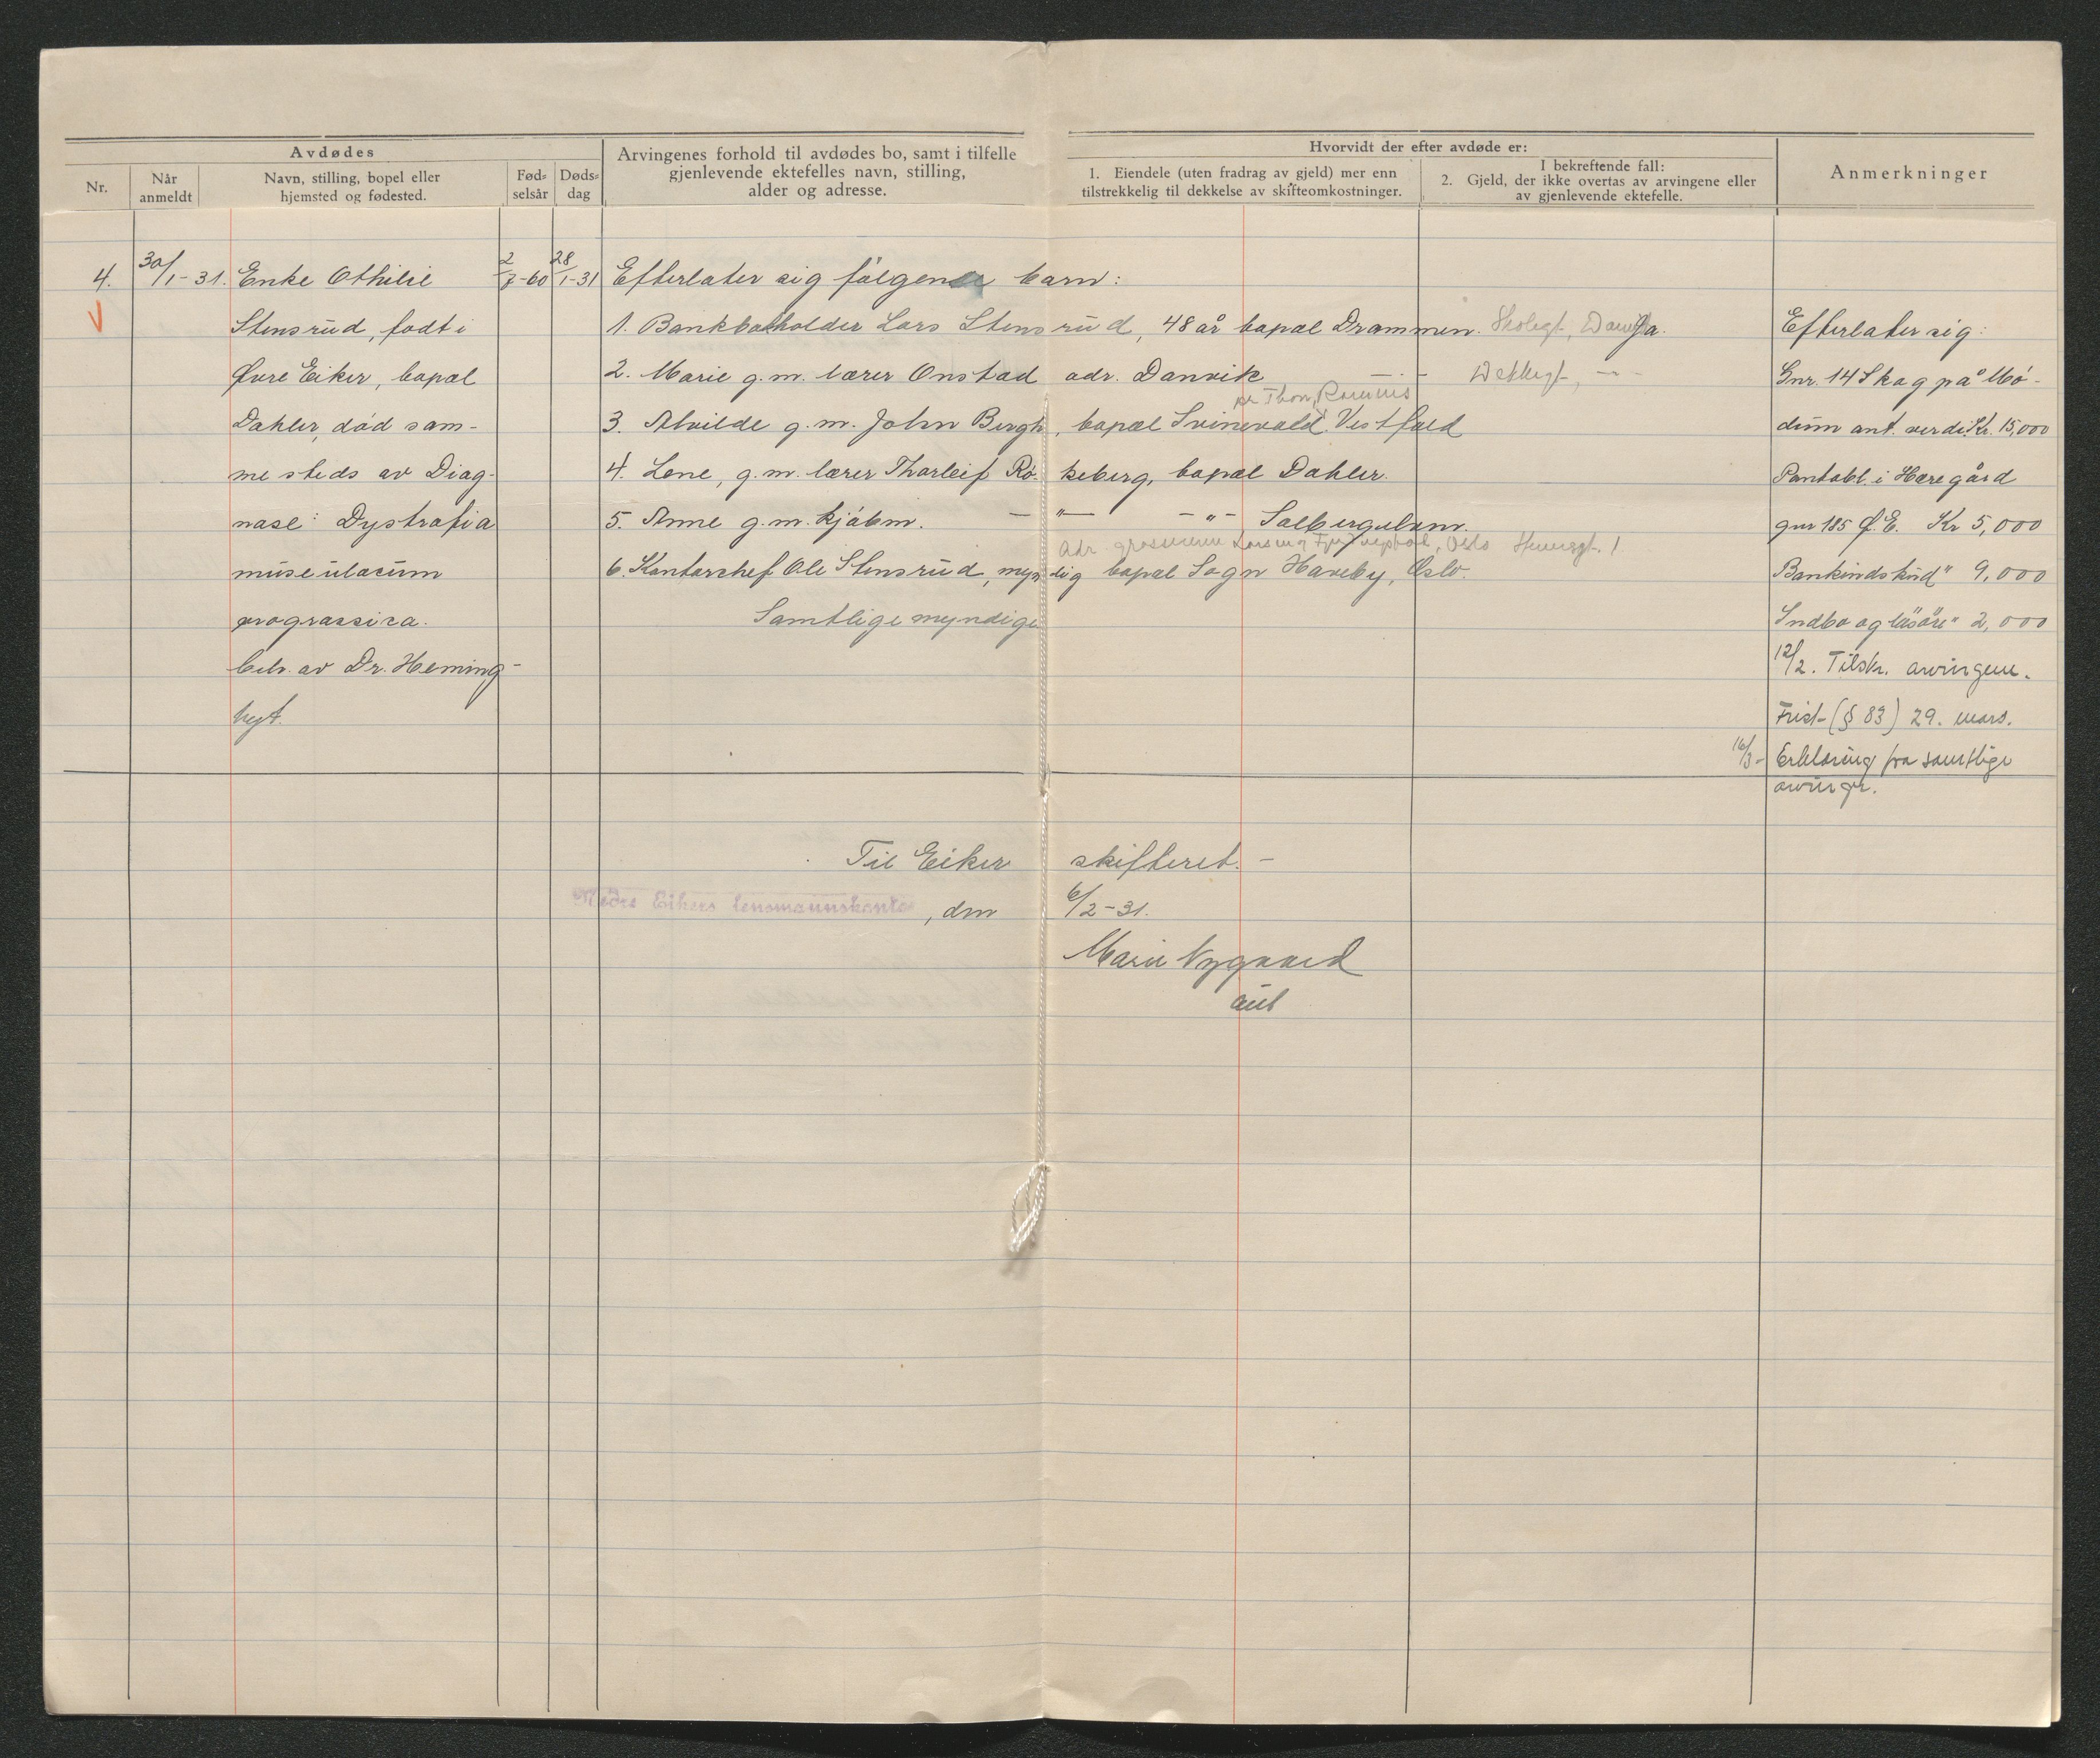 Avdødes
Nr.
Når anmeldt
Navn, stilling, bopel eller hjemsted og fødested.
Fød-selsår
Døds-dag
Arvingenes forhold til avdødes bo, samt i tilfelle
gjenlevende ektefelles navn, stilling,
alder og adresse.
Hvorvidt der efter avdøde er:
1. Eiendele (uten fradrag av gjeld) mer enn
tilstrekkelig til dekkelse av skifteomkostninger.
I bekreftende fall:
2. Gjeld, der ikke overtas av arvingene eller
av gjenlevende ektefelle.
Anmerkninger
4.
30/1-31.
Enke Othilie
Stensrud, født i
Øvre Eiker, bopæl
Dahler, død sam-
me steds av Diag-
nose: Dystrofia
museulacum
prograssiva.
beh. av Dr. Heming-
hyt.
2/7-60
28/1-31
Efterlater sig følgende barn:
1. Bankbokholder Lars Stensrud, 48 år bopæl Drammen. Ja.
2. Marie g.m. lærer Onstad adr. Danvik
3. Alvilde g.m. John Bergh, bopæl Svinevold Vestfold
4. Lene, g.m. lærer Thorleif Rokeberg, bopæl Dahler.
5. Anne g.m. kjøbm. — " — - " - Solbergelven.
6. Kontorchef Ole Stensrud, myndig bopæl Sogn Haveby, Oslo.
Samtlige myndige
Efterlater sig:
Gnr. 14 Skog på Mó-
dum ant. verdi Kr. 15,000
Pantobl. i Horegård
gnr 185 Ø.E. Kr 5,000
Bankindskud " 9,000
Indbo og løsøre " 2,000
12/2. Tilskr. arvingene.
Frist (§ 83) 29. mars.
16/3- Erklæring fra samtlige
arvinger.
Til Eiker skifteret. —
Nedre Eikers lensmannskontor, den 6/2-31.
Marie Nygaard
aut